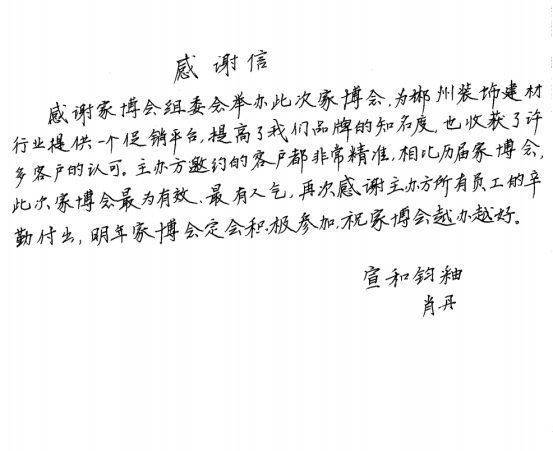 感谢信
感谢家博会组委会举办此次家博会,为郴州装饰建材
行业提供一个促销平台,提高了我们品牌的知名度,也收获了许
多客户的认可。主办方邀约的客户都非常精准,相比历届家博会,
此次家博会最为有效、最有人气,再次感谢主办方所有员工的辛
勤付出,明年家博会定会积极参加,祝家博会越办越好。
宣和钧釉
肖丹